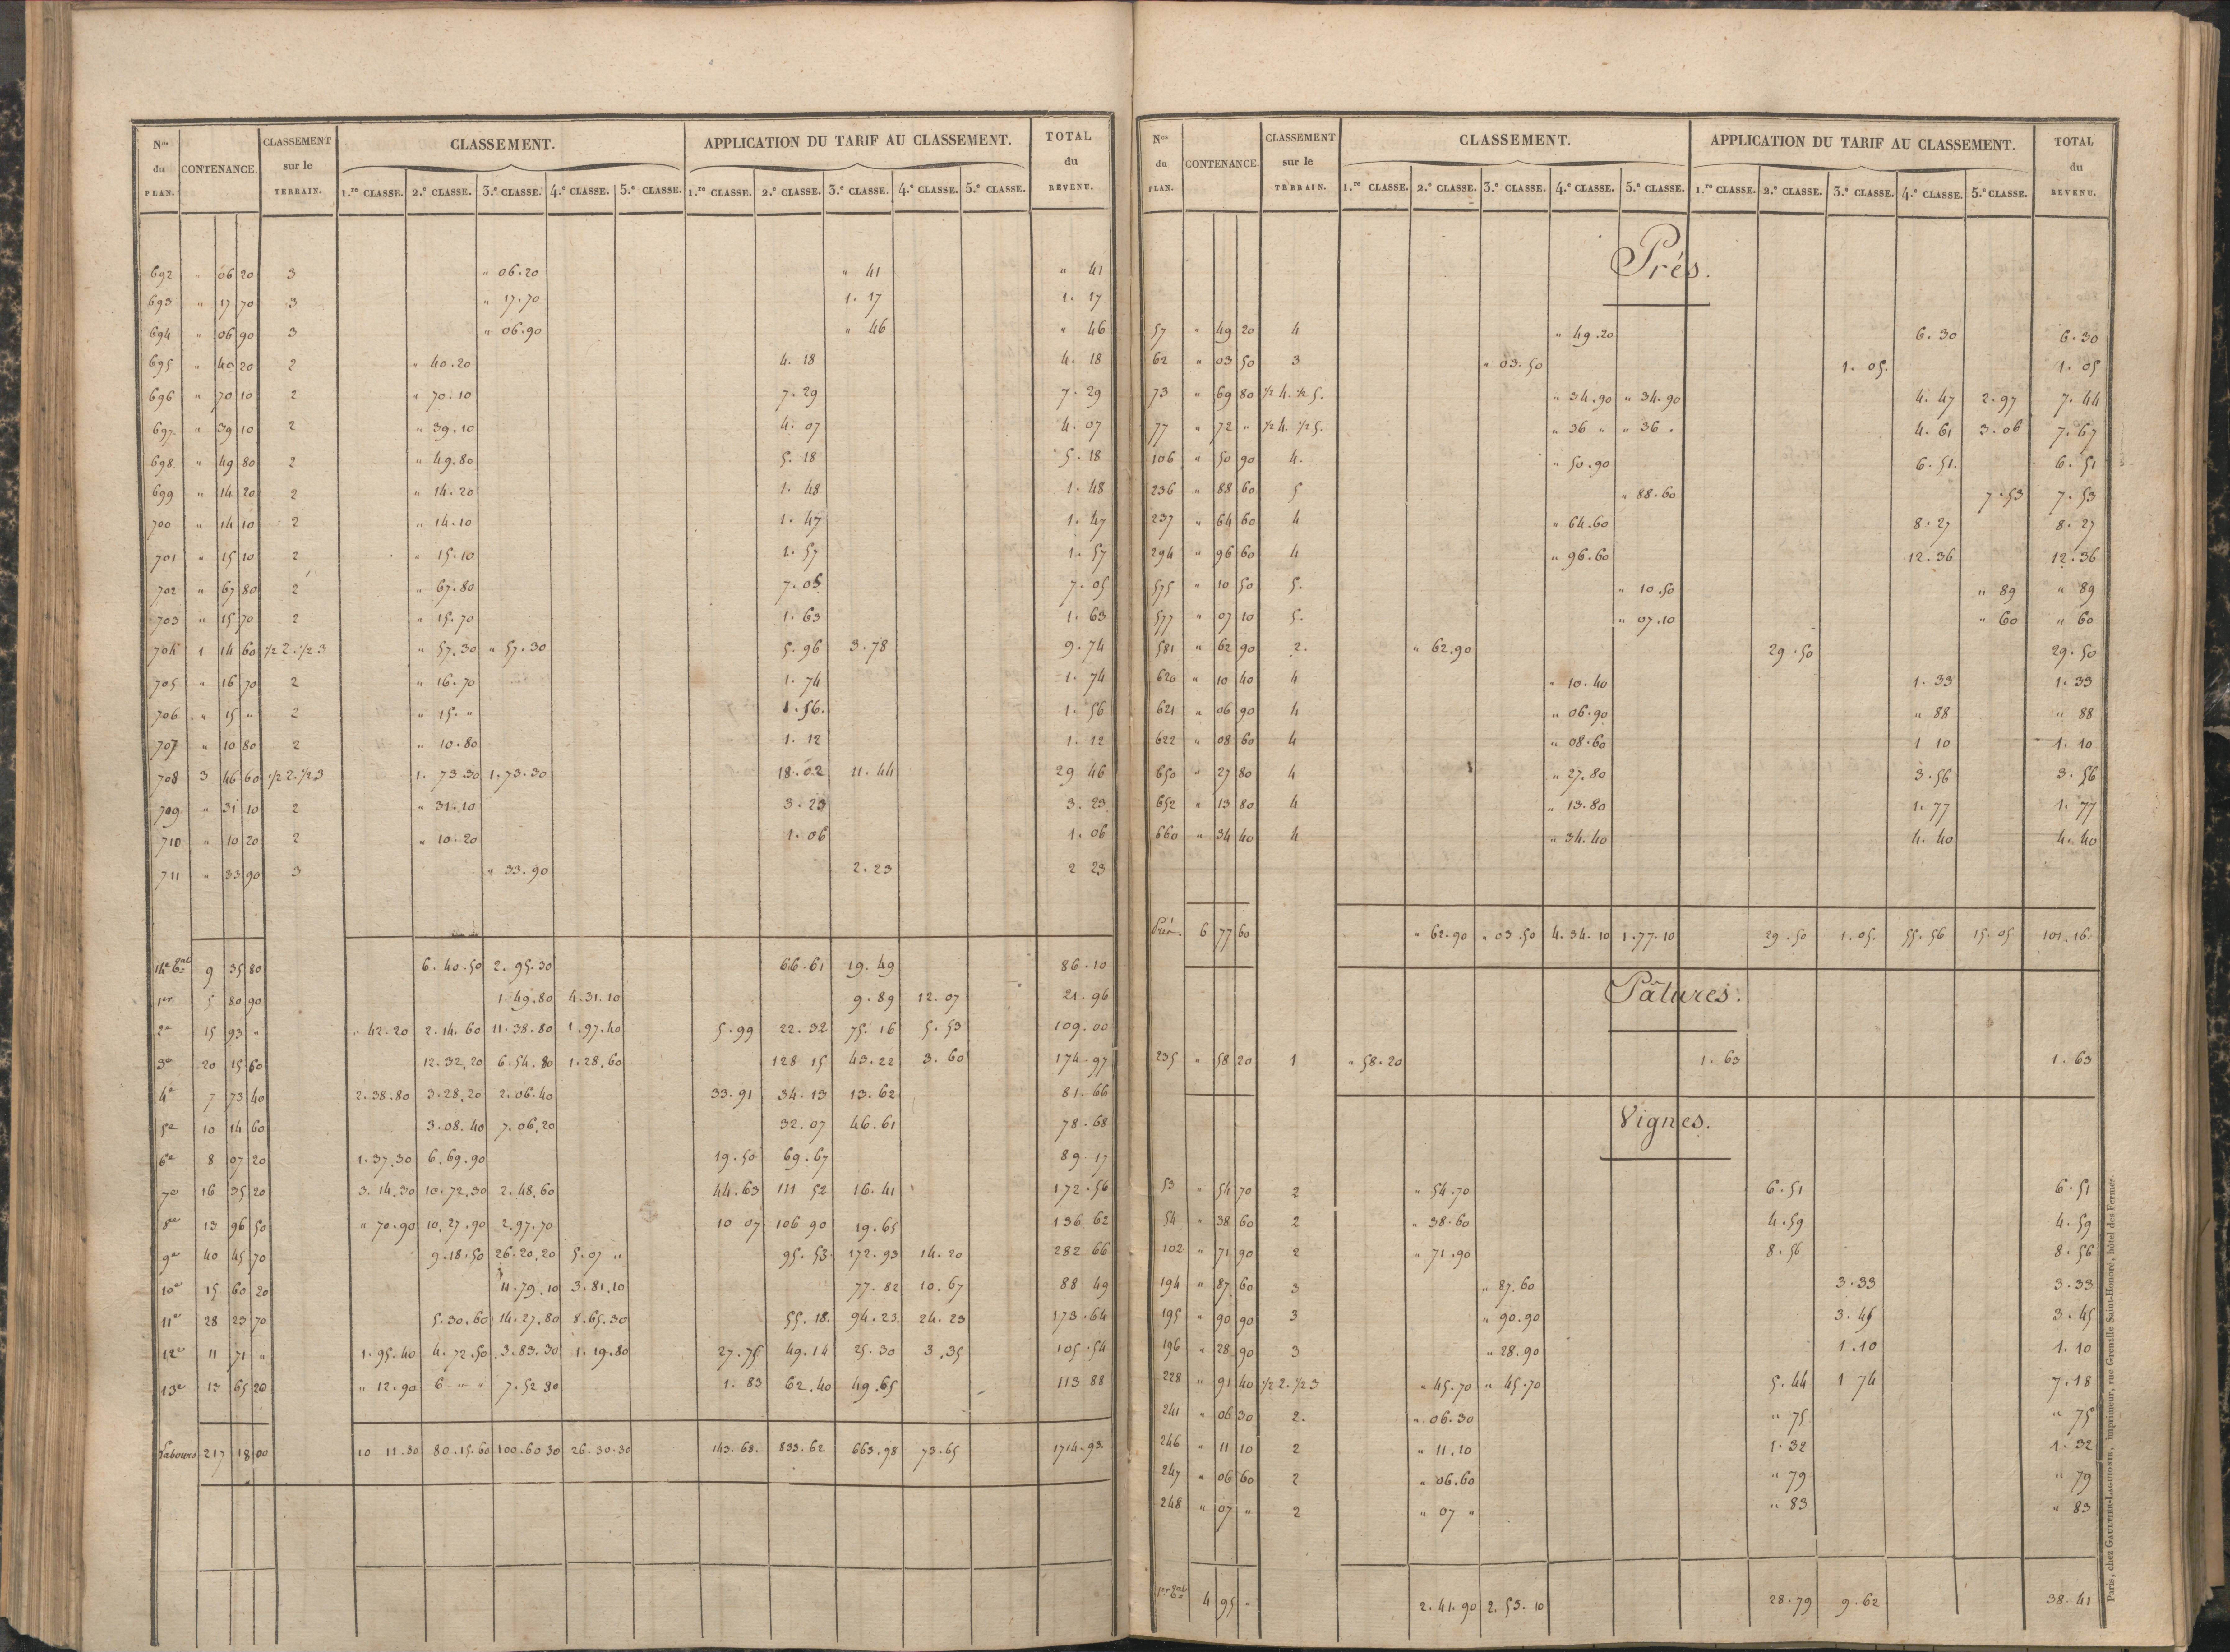 Nos du PLAN. CONTENANCE. CLASSEMENT sur le TERRAIN. CLASSEMENT. APPLICATION DU TARIF AU CLASSEMENT. TOTAL du REVENU.
1.re CLASSE. 2.e CLASSE. 3.e CLASSE. 4.e CLASSE. 5.e CLASSE. 1.re CLASSE. 2.e CLASSE. 3.e CLASSE. 4.e CLASSE. 5.e CLASSE.
692 " 06 20 3 " 06.20 " 41 " 41
693 " 17 70 3 " 17.70 1. 17 1. 17
694 " 06 90 3 " 06.90 " 46 " 46
695 " 40 20 2 " 40.20 4. 18 4. 18
696 " 70 10 2 " 70.10 7. 29 7. 29
697 " 39 10 2 " 39.10 4. 07 4. 07
698 " 49 80 2 " 49.80 5. 18 5. 18
699 " 14 20 2 " 14.20 1. 48 1. 48
700 " 14 10 2 " 14.10 1. 47 1. 47
701 " 15 10 2 " 15.10 1. 57 1. 57
702 " 67 80 2 " 67.80 7. 05 7. 05
703 " 15 70 2 " 15.70 1. 63 1. 63
704 1 14 60 1/2 2. 1/2 3 " 57.30 " 57.30 5. 96 3. 78 9. 74
705 " 16 70 2 " 16.70 1. 74 1. 74
706 " 15 " 2 " 15. " 1. 56. 1. 56
707 " 10 80 2 " 10.80 1. 12 1. 12
708 3 46 60 1/2 2. 1/2 3 1. 73.30 1. 73.30 18. 02 11. 44 29 46
709 " 31 10 2 " 31.10 3. 23 3. 23
710 " 10 20 2 " 10.20 1. 06 1. 06
711 " 33 90 3 " 33.90 2. 23 2 23
14e 9 35 80 6. 40.50 2. 95.30 66. 61 19. 49 86. 10
1er 5 80 90 1. 49.80 4. 31. 10 9. 89 12. 07 21. 96
2e 15 93 " " 42.20 2. 14. 60 11. 38. 80 1. 97. 40 5. 99 22. 32 75. 16 5. 53 109. 00
3e 20 15 60 12. 32. 20 6. 54. 80 1. 28. 60 128 15 43. 22 3. 60 174. 97
4e 7 73 40 2. 38. 80 3. 28. 20 2. 06. 40 33. 91 34. 13 13. 62 81. 66
5e 10 14 60 3. 08. 40 7. 06. 20 32. 07 46. 61 78. 68
6e 8 07 20 1. 37. 30 6. 69. 90 19. 50 69. 67 89. 17
7e 16 35 20 3. 14. 30 10. 72. 30 2. 48. 60 44. 63 111 52 16. 41 172. 56
8e 13 96 50 " 70. 90 10. 27. 90 2. 97. 70 10 07 106 90 19. 65 136 62
9e 40 45 70 9. 18. 50 26. 20. 20 5. 07 " 95. 53. 172. 93 14. 20 282 66
10e 15 60 20 11. 79. 10 3. 81. 10 77. 82 10. 67 88 49
11e 28 23 70 5. 30. 60 14. 27. 80 8. 65. 30 55. 18. 94. 23. 24. 23 173. 64
12e 11 71 " 1. 95. 40 4. 72. 50 3. 83. 30 1. 19. 80 27. 75 49. 14 25. 30 3. 35 105. 54
13e 13 65 20 " 12. 90 6 " " 7. 52 30 1. 83 62. 40 49. 65 113 88
Labours 217 18 00 10 11. 30 80. 15. 60 100. 60 30 26. 30. 30 143. 68. 833. 62 663. 98 73. 65 1714. 93.
Nos du PLAN. CONTENANCE. CLASSEMENT sur le TERRAIN. CLASSEMENT. APPLICATION DU TARIF AU CLASSEMENT. TOTAL du REVENU.
1.re CLASSE. 2.e CLASSE. 3.e CLASSE. 4.e CLASSE. 5.e CLASSE. 1.re CLASSE. 2.e CLASSE. 3.e CLASSE. 4.e CLASSE. 5.e CLASSE.
Prés.
57 " 49 20 4 " 49.20 6. 30 6. 30
62 " 03 50 3 " 03. 50 1. 05. 1. 05
73 " 69 80 1/2 4. 1/2 5. " 34. 90 " 34. 90 4. 47 2. 97 7. 44
77 " 72 " 1/2 4. 1/2 5. " 36 " " 36 " 4. 61 3. 06 7. 67
106 " 50 90 4. " 50. 90 6. 51. 6. 51
236 " 88 60 5 " 88. 60 7. 53 7. 53
237 " 64 60 4 " 64. 60 8. 27 8. 27
294 " 96 60 4 " 96. 60 12. 36 12. 36
575 " 10 50 5. " 10. 50 " 89 " 89
577 " 07 10 5. " 07. 10 " 60 " 60
581 " 62 90 2. " 62. 90 29. 50 29. 50
620 " 10 40 4 " 10. 40 1. 33 1. 33
621 " 06 90 4 " 06. 90 " 88 " 88
622 " 08 60 4 " 08. 60 1 10 1. 10
650 " 27 80 4 " 27. 80 3. 56 3. 56
652 " 13 80 4 " 13. 80 1. 77 1. 77
660 " 34 40 4 " 34. 40 4. 40 4. 40
Prés. 6 77 60 " 62. 90 " 03. 50 4. 34. 10 1. 77. 10 29. 50 1. 05. 55. 56 15. 05 101. 16.
Pâtures.
235 " 58 20 1 " 58. 20 1. 63 1. 63
Vignes.
53 " 54 70 2 " 54. 70 6. 51 6. 51
54 " 38 60 2 " 38. 60 4. 59 4. 59
102 " 71 90 2 " 71. 90 8. 56 8. 56
194 " 87 60 3 " 87. 60 3. 33 3. 33
195 " 90 90 3 " 90. 90 3. 45 3. 45
196 " 28 90 3 " 28. 90 1. 10 1. 10
228 " 91 40 1/2 2. 1/2 3 " 45. 70 " 45. 70 5. 44 1 74 7. 18
241 " 06 30 2. " 06. 30 " 75 " 75
246 " 11 10 2 " 11. 10 1. 32 1. 32
247 " 06 60 2 " 06. 60 " 79 " 79
248 " 07 " 2 " 07 " " 83 " 83
1er 4 95 " 2. 41. 90 2. 53. 10 28. 79 9. 62 38. 41
Paris, chez GAULTIER-LAGUIONIE, imprimeur, rue Grenelle Saint-Honoré, hôtel des Fermes.